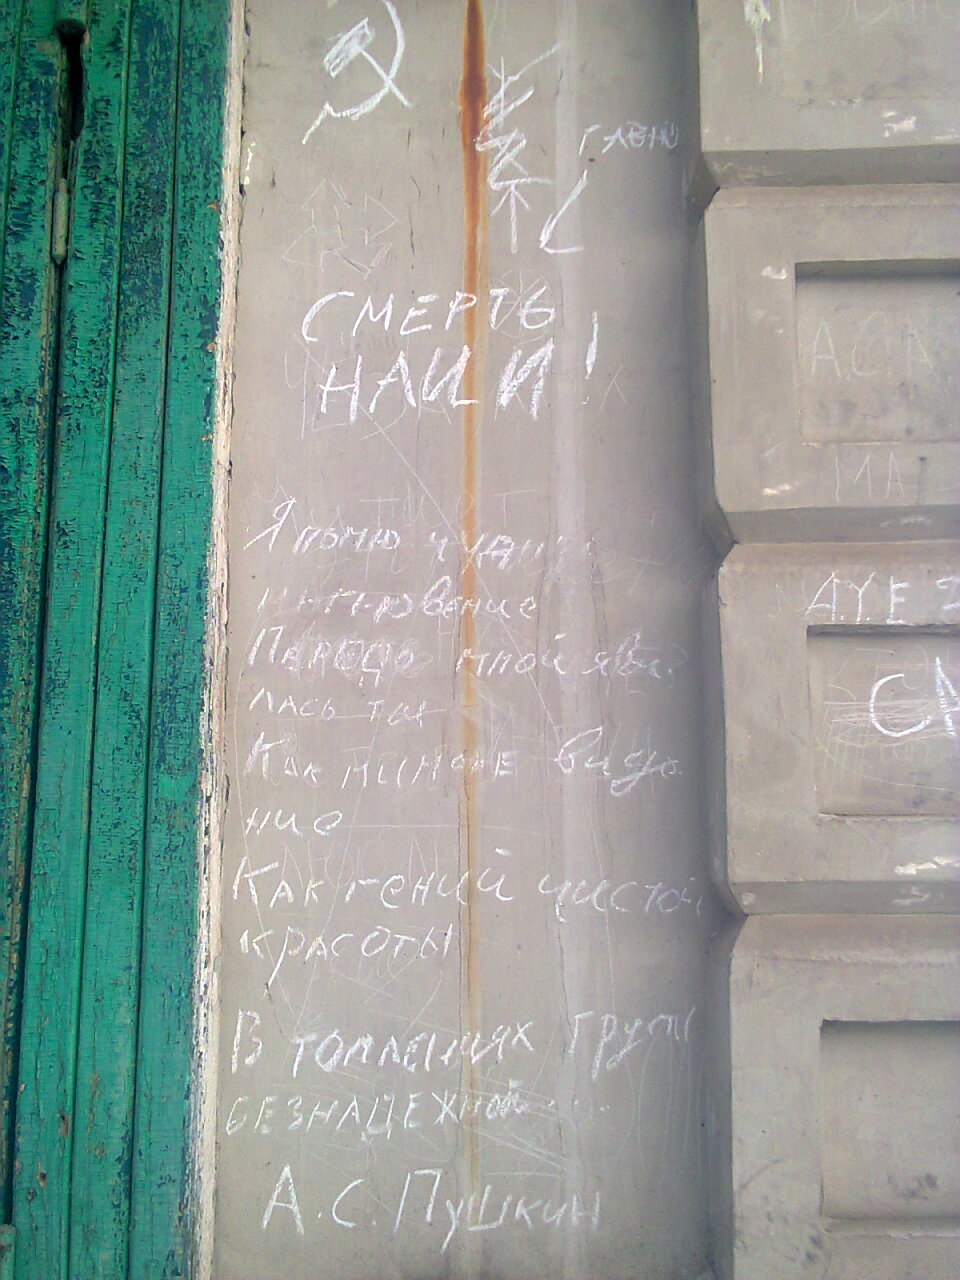 СМЕРТЬ
НАЦИ!
Я помню чудное
мгновение
Передо мной яви
лась ты
Как мимолЕ виде
ние
Как гений чистой
красоты
В томлениях грусти
БЕЗНАДЕЖНОЙ...
А.С.Пушкин
А.С.
МА
A.Y.E